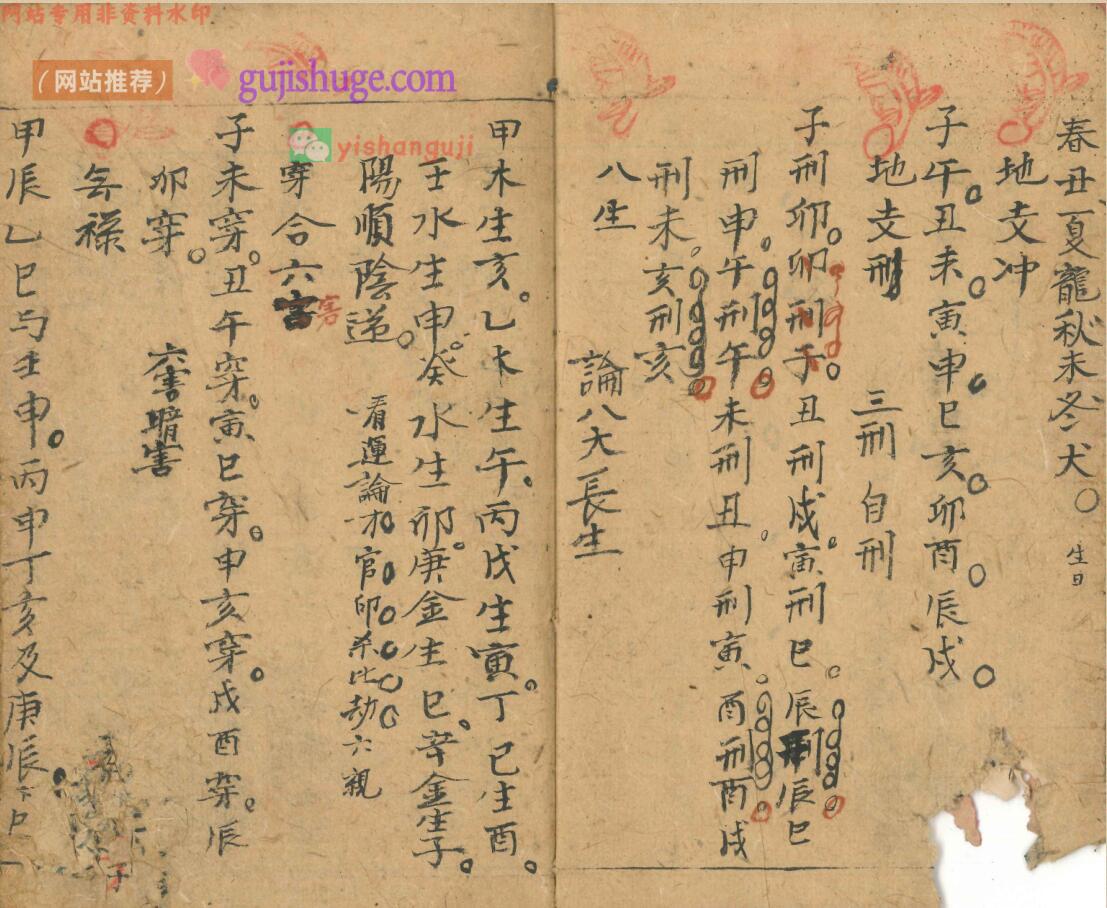 网站专用非资料水印
（网站推荐）
gujishuge.com
yishanguji
春丑夏龍秋未冬犬○ 生日
地支冲
子午。丑未。寅申。巳亥。卯酉。辰戌。
地支刑 三刑 自刑
子刑卯。卯刑子。丑刑戌。寅刑巳。辰刑辰。巳
刑申。午刑午。未刑丑。申刑寅。酉刑酉。戌
刑未。亥刑亥
八生 論八大長生
甲木生亥。乙木生午。丙戊生寅。丁巳生酉。
壬水生申。癸水生卯。庚金生巳。辛金生子。
陽順陰逆。 看運論才官印杀比劫六親
穿合六害 害
子未穿。丑午穿。寅巳穿。申亥穿。戌酉穿。辰
卯穿。 六害暗害
無祿
甲辰乙巳与壬申。丙申丁亥及庚辰。